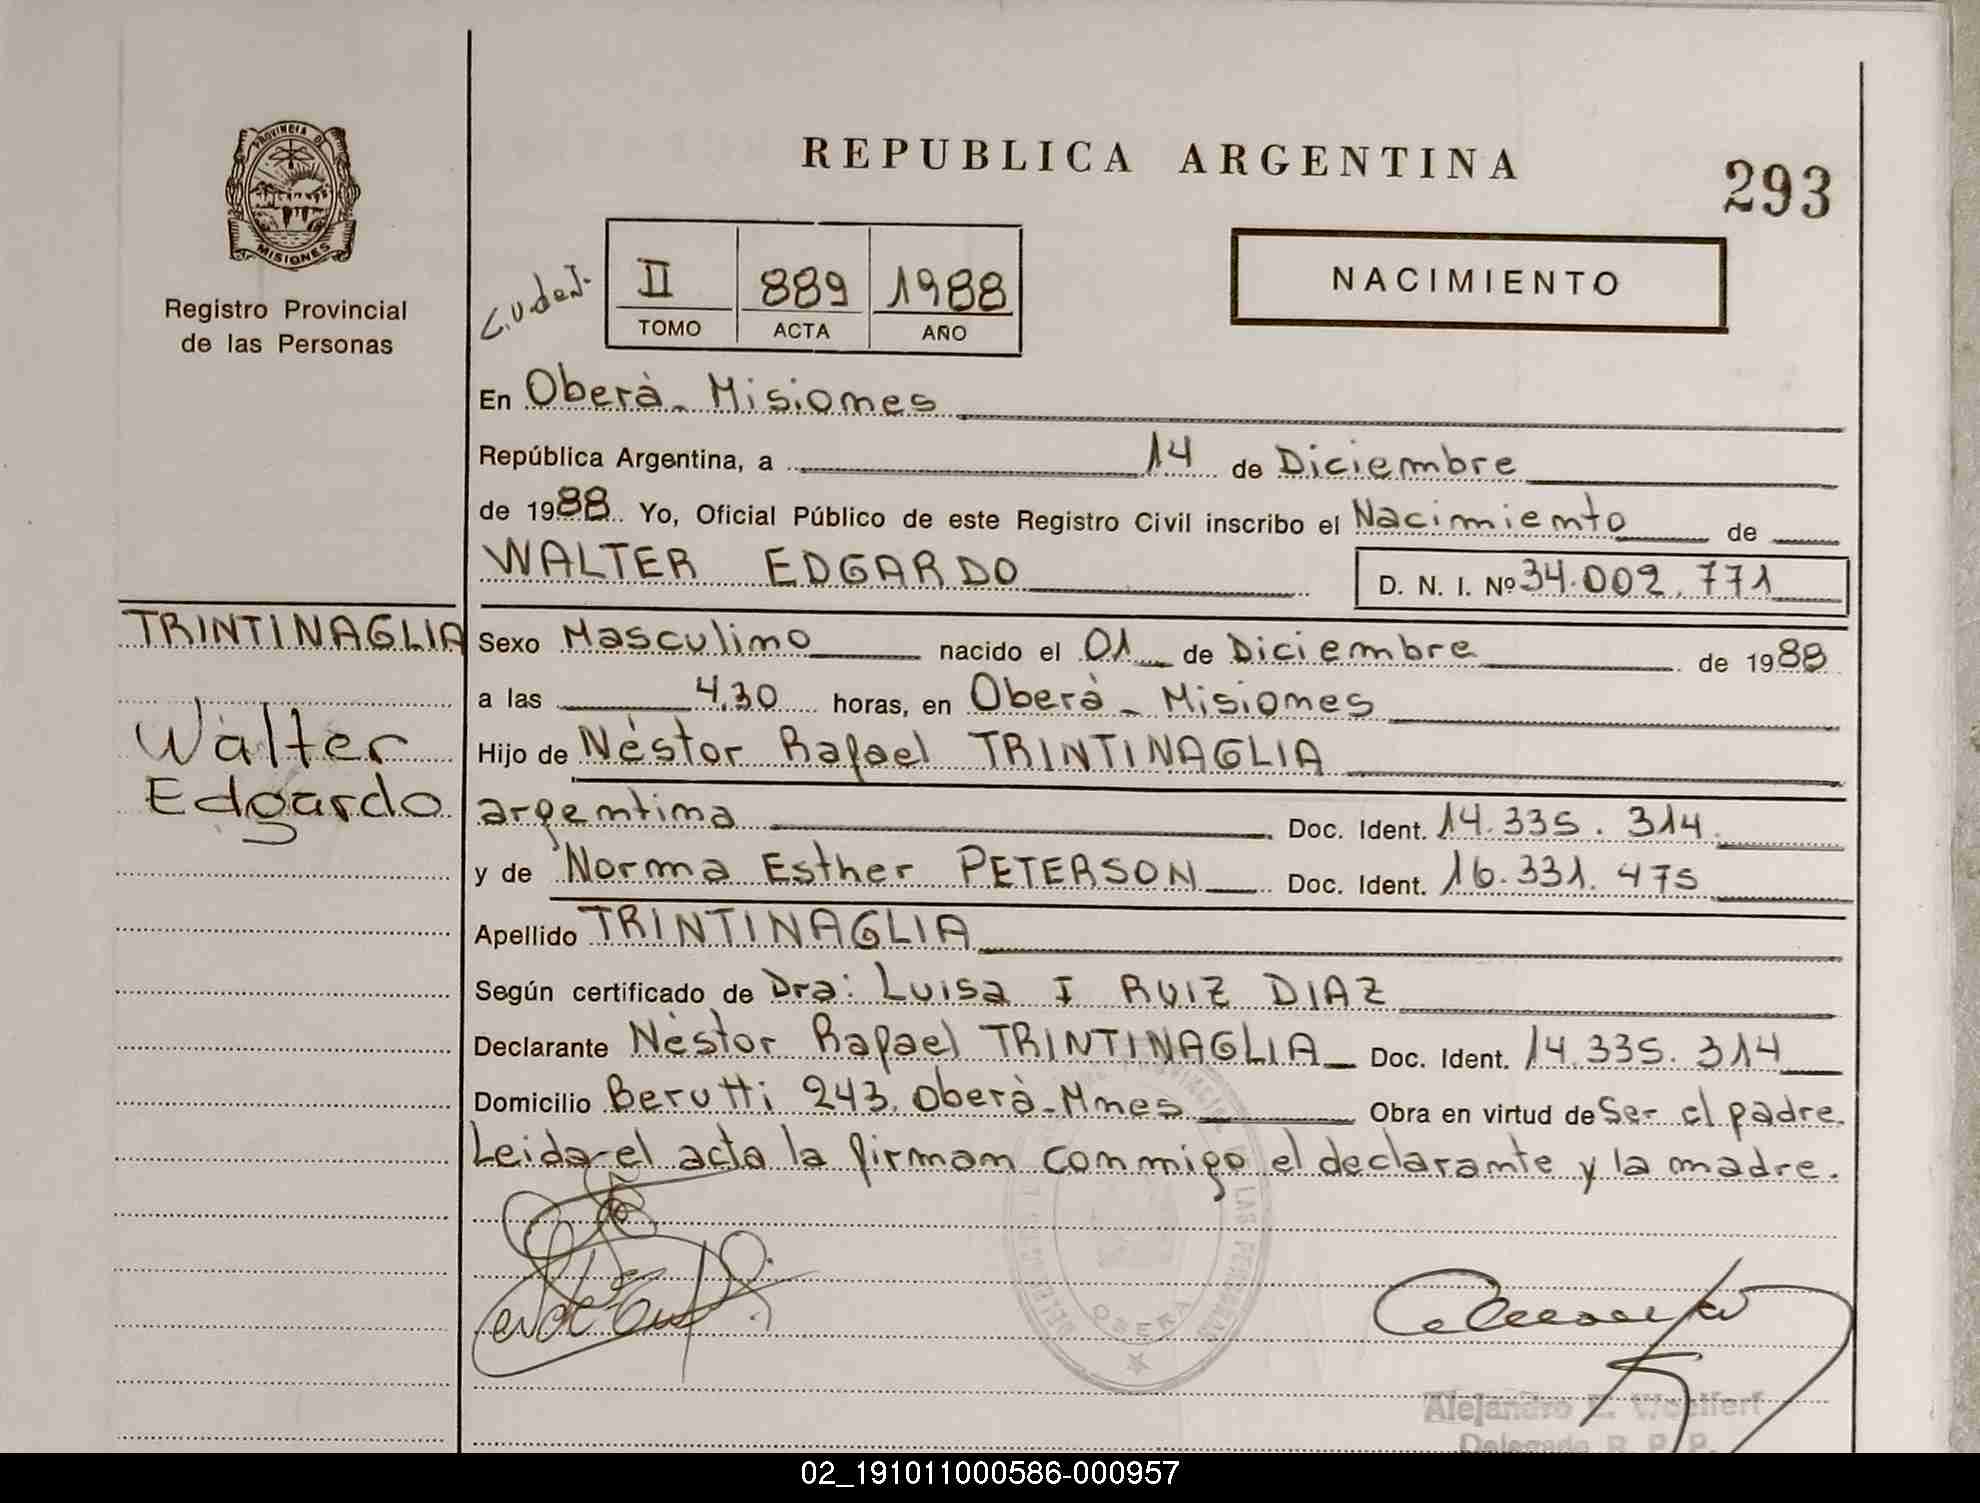 PROVINCIA DE
MISIONES
Registro Provincial
de las Personas
REPUBLICA ARGENTINA
293
II 889 1988
TOMO ACTA AÑO
NACIMIENTO
En Oberà - Misiones
República Argentina, a 14 de Diciembre
de 1988 Yo, Oficial Público de este Registro Civil inscribo el Nacimiento de
WALTER EDGARDO D. N. I. Nº 34.002.771
TRINTINAGLIA
Walter
Edgardo
Sexo Masculino nacido el 01 de Diciembre de 1988
a las 4,30 horas, en Oberà - Misiones
Hijo de Nèstor Rafael TRINTINAGLIA
argentina Doc. Ident. 14.335.314
y de Norma Esther PETERSON Doc. Ident. 16.331.475
Apellido TRINTINAGLIA
Según certificado de Dra: Luisa I RUIZ DIAZ
Declarante Nèstor Rafael TRINTINAGLIA Doc. Ident. 14.335.314
Domicilio Berutti 243. Oberà - Mnes Obra en virtud de Ser el padre.
Leida el acta la firman conmigo el declarante y la madre.
LAS PERSONAS
OBERA
Alejandro E.
Delegado R. P. P.
02_191011000586-000957